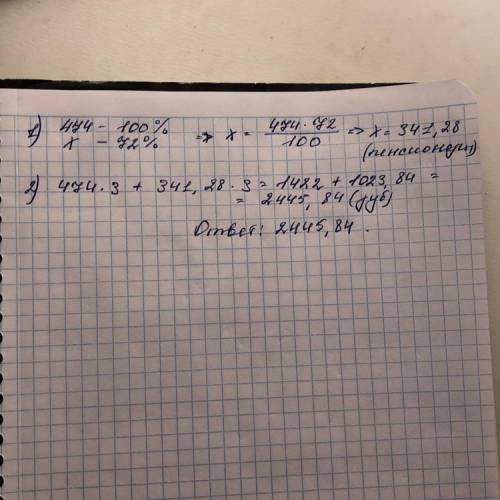 1) 474 - 100%
x - 72% => x = 474·72 / 100 => x = 341,28
(пенсионеры)
2) 474·3 + 341,28·3 = 1422 + 1023,84 =
= 2445,84 (руб)
Ответ: 2445,84.